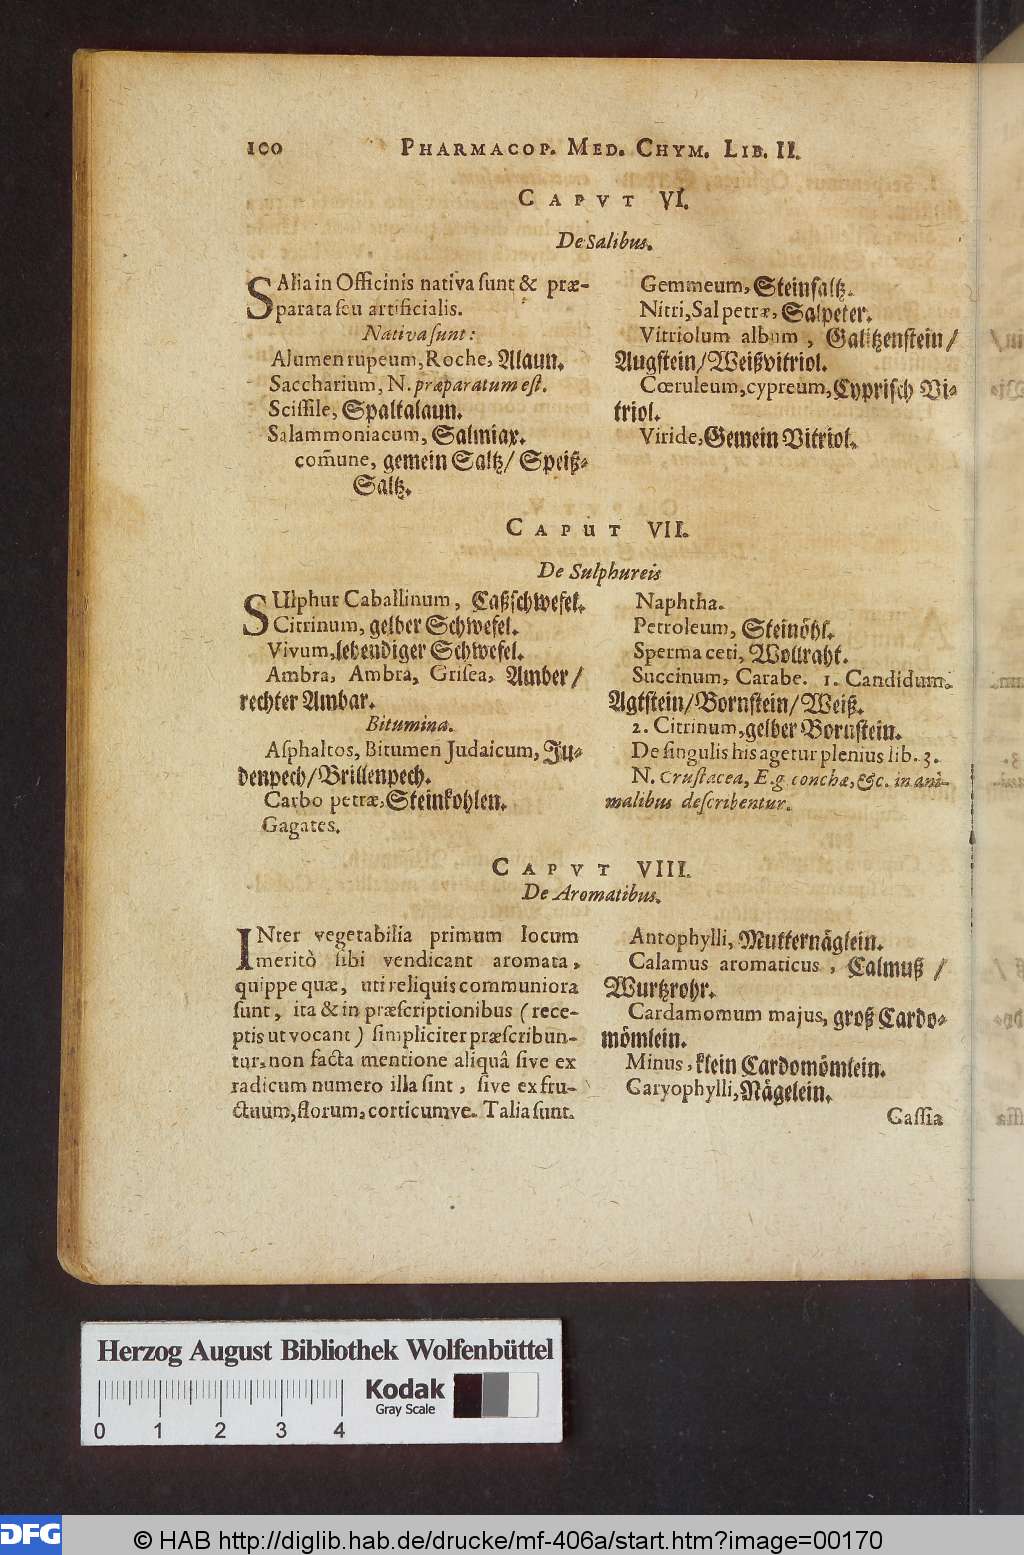 100 PHARMACOP. MED. CHYM. LIB. II.
CAPVT VI.
De Salibus.
SAlia in Officinis nativa sunt & præ-
parata seu artificialis.
Nativa sunt:
Alumen rupeum, Roche, Alaun.
Saccharium, N. præparatum est.
Scissile, Spaltalaun.
Salammoniacum, Salmiax.
com̃une, gemein Saltz/ Speiß-
Saltz.
Gemmeum, Steinsaltz.
Nitri, Sal petræ, Salpeter.
Vitriolum album, Galitzenstein/
Augstein/Weißvitriol.
Cœruleum, cypreum, Cyprisch Vi-
triol.
Viride, Gemein Vitriol.
CAPUT VII.
De Sulphureis
SUlphur Caballinum, Caßschwefel.
Citrinum, gelber Schwefel.
Vivum, lebendiger Schwefel.
Ambra, Ambra, Grisea, Amber/
rechter Ambar.
Bitumina.
Asphaltos, Bitumen Judaicum, Ju-
denpech/Brillenpech.
Carbo petræ, Steinkohlen.
Gagates.
Naphtha.
Petroleum, Steinöhl.
Sperma ceti, Wollraht.
Succinum, Carabe. 1. Candidum.
Agtstein/Bornstein/Weiß.
2. Citrinum, gelber Bornstein.
De singulis his agetur plenius lib. 3.
N. Crustacea, E.g. conchæ, &c. in ani-
malibus describentur.
CAPVT VIII.
De Aromatibus.
INter vegetabilia primum locum
meritò sibi vendicant aromata,
quippe quæ, uti reliquis communiora
sunt, ita & in præscriptionibus (rece-
ptis ut vocant) simpliciter præscribun-
tur, non facta mentione aliquâ sive ex
radicum numero illa sint, sive ex fru-
ctuum, florum, corticumve. Talia sunt.
Antophylli, Mutternäglein.
Calamus aromaticus, Calmuß /
Wurtzrohr.
Cardamomum majus, groß Cardo-
mömlein.
Minus, klein Cardomömlein.
Caryophylli, Nägelein.
Cassia
Herzog August Bibliothek Wolfenbüttel
Kodak
Gray Scale
0 1 2 3 4
DFG © HAB http://diglib.hab.de/drucke/mf-406a/start.htm?image=00170